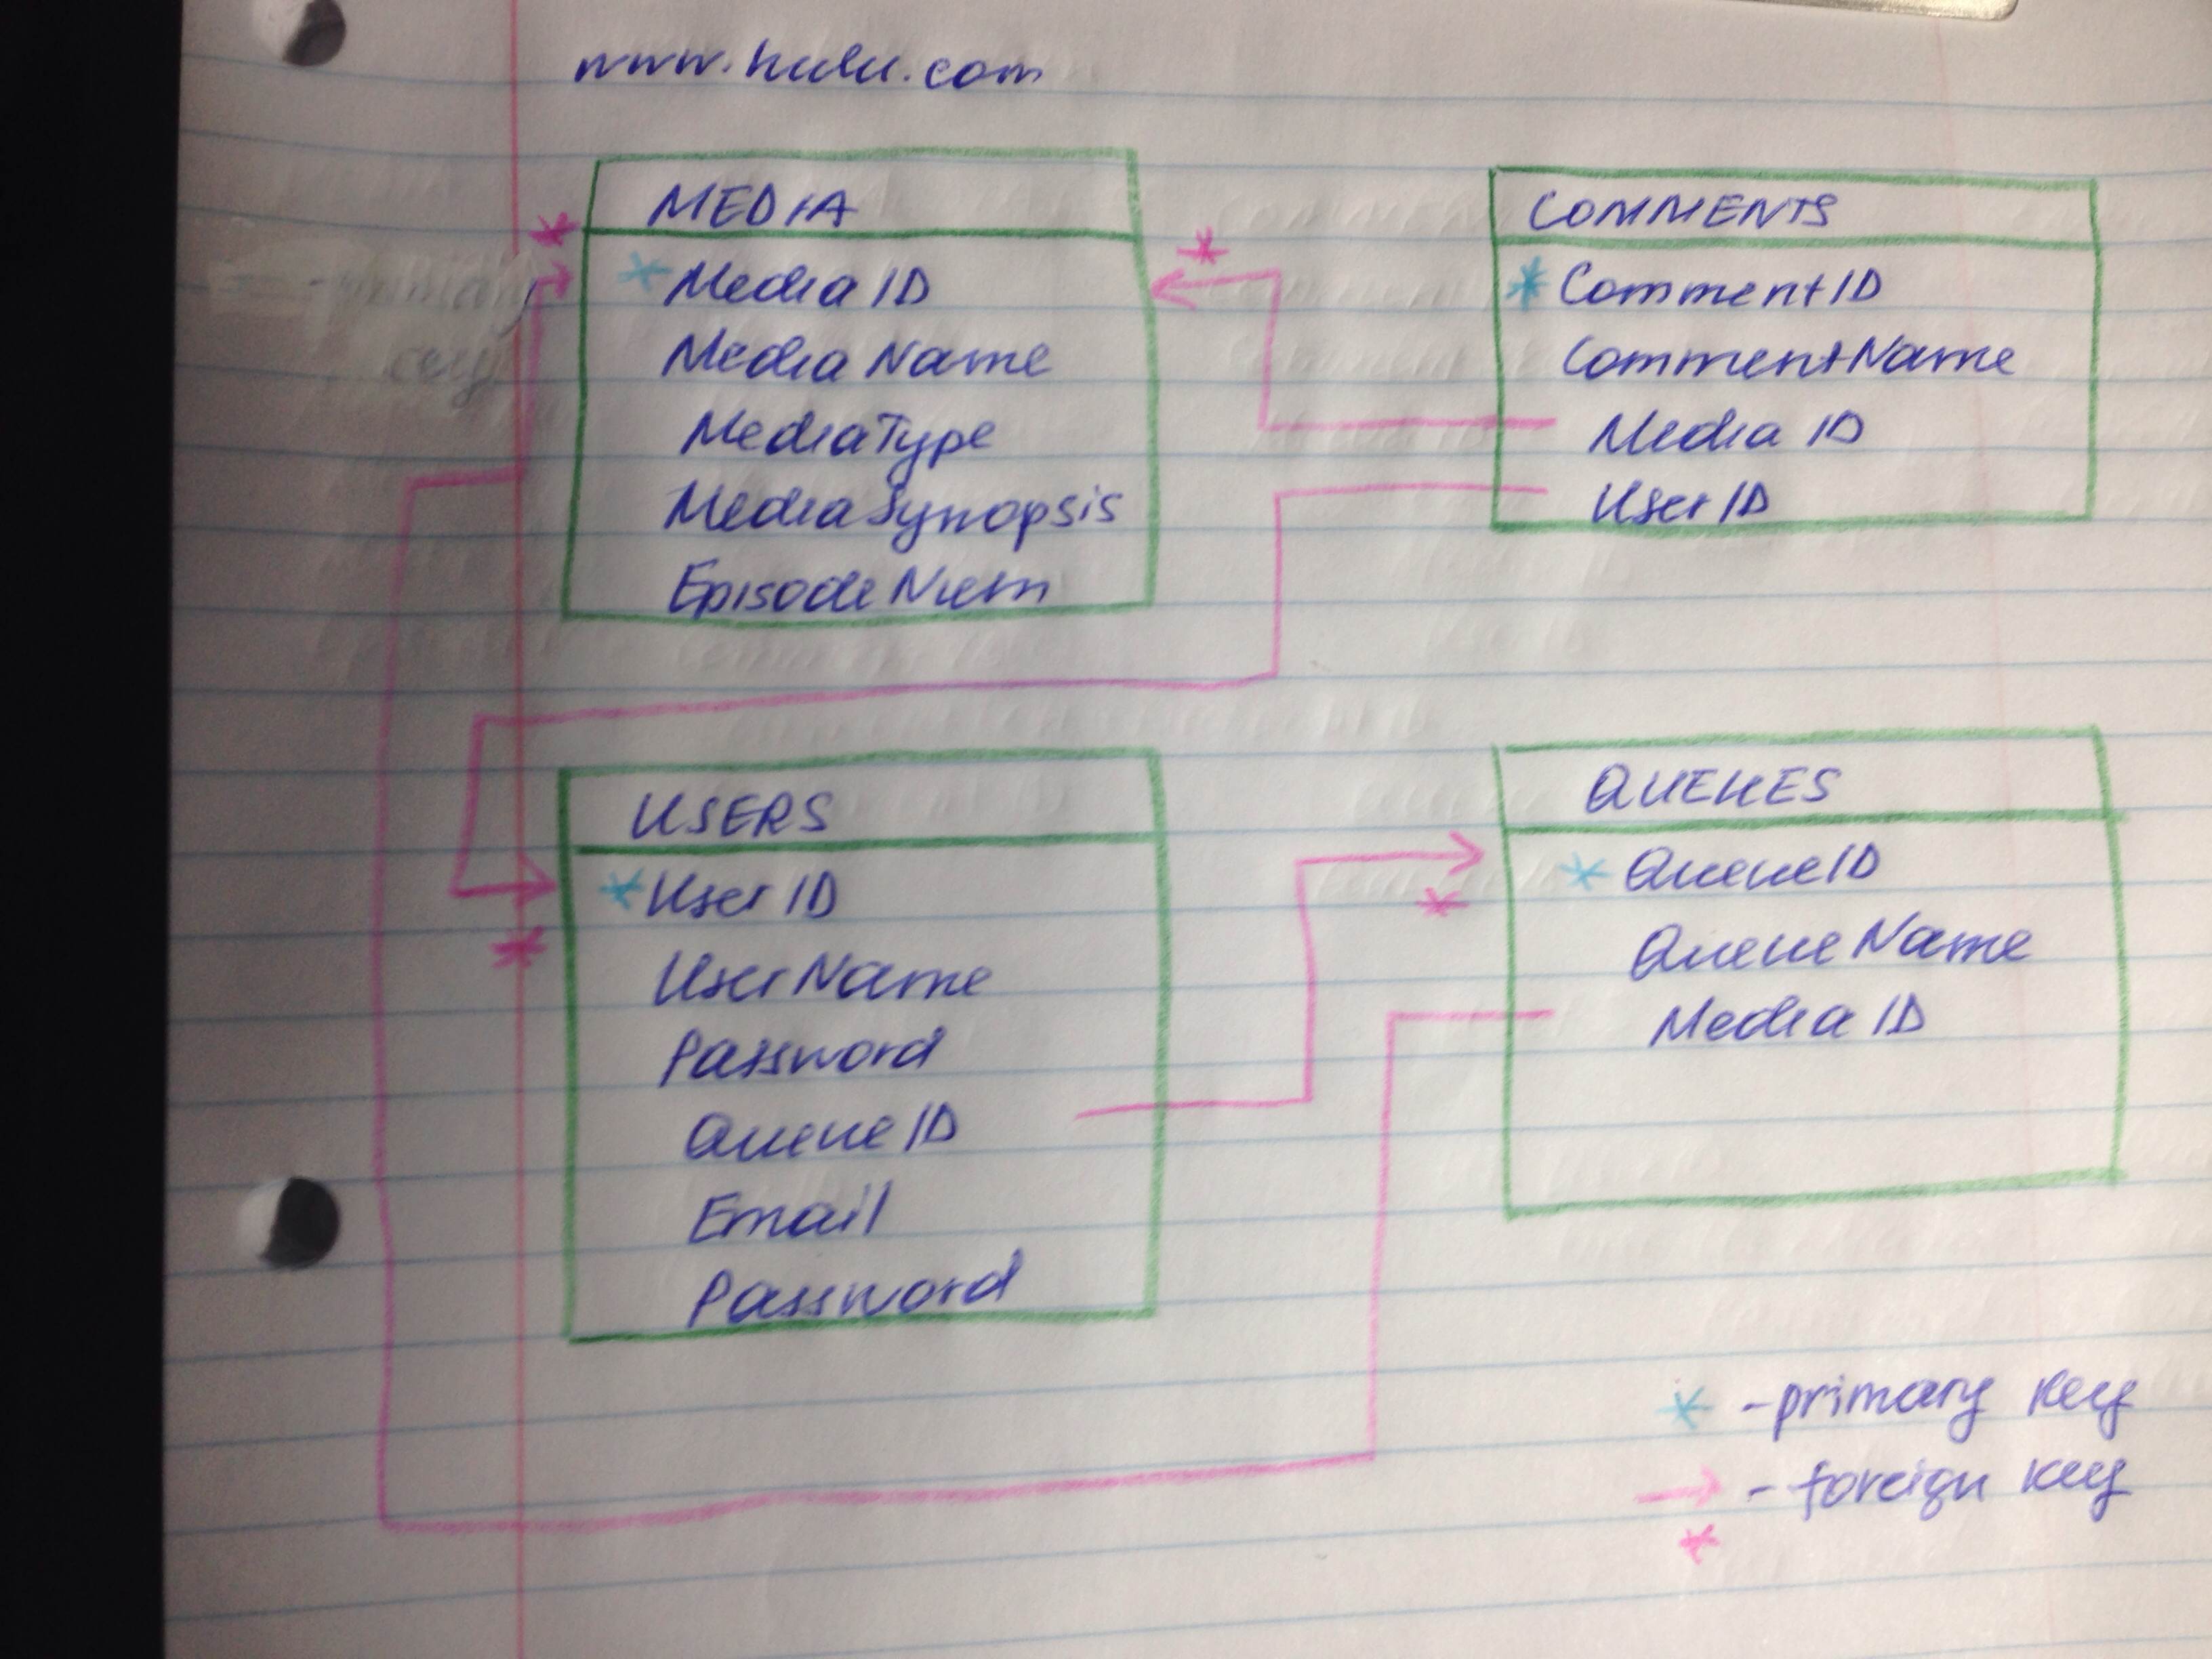 www.hulu.com
MEDIA
* MediaID
MediaName
MediaType
MediaSynopsis
EpisodeNum
COMMENTS
* CommentID
CommentName
Media ID
UserID
USERS
* UserID
UserName
Password
QueueID
Email
Password
QUEUES
* QueueID
QueueName
MediaID
* - primary key
→ - foreign key
*